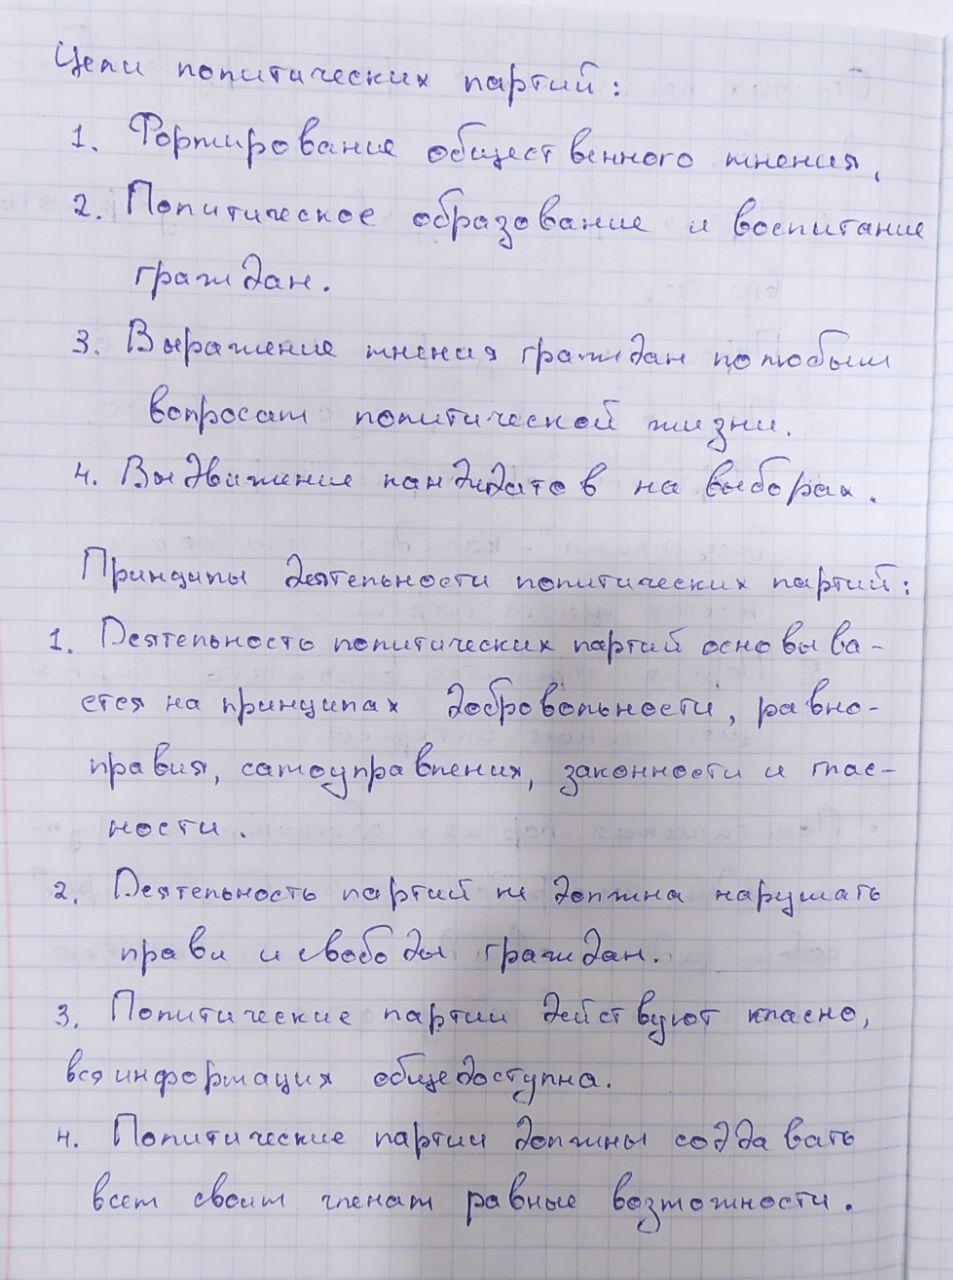 Цели политических партий:
1. Формирование общественного мнения,
2. Политическое образование и воспитание
граждан.
3. Выражение мнения граждан по любым
вопросам политической жизни.
4. Выдвижение кандидатов на выборах.
Принципы деятельности политических партий:
1. Деятельность политических партий основыва-
ется на принципах добровольности, равно-
правия, самоуправления, законности и глас-
ности.
2. Деятельность партий не должна нарушать
права и свободы граждан.
3. Политические партии действуют гласно,
вся информация общедоступна.
4. Политические партии должны создавать
всем своим членам равные возможности.